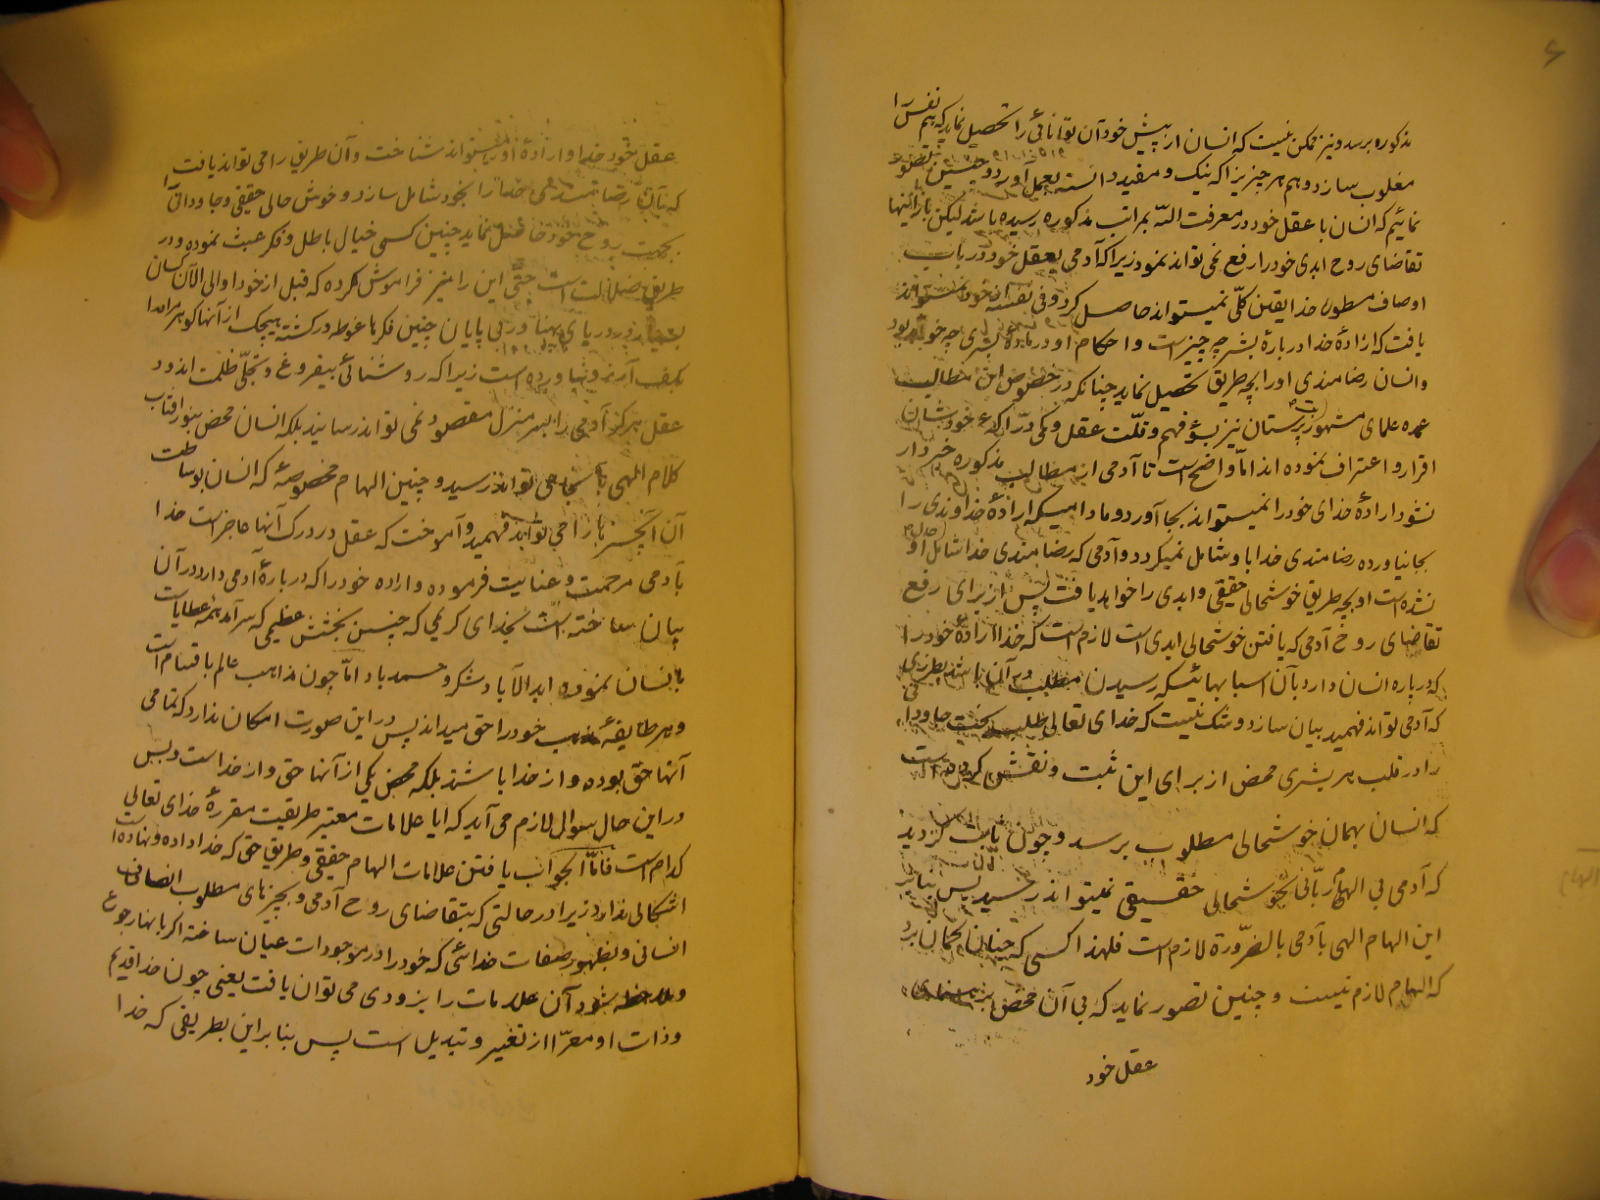 مذکوره برسد و نیز ممکن نیست که انسان از پیش خود آن توانائی را تحصیل نماید که هم نفس را
مغلوب سازد و هم هر چیزیرا که نیک و مفید دانسته بعمل آورد و چنین تصور
نمائیم که انسان با عقل خود در معرفت الله بمراتب مذکوره رسیده باشد لیکن باز اینها
تقاضای روح ابدی خود را رفع نمی تواند نمود زیرا که آدمی بعقل خود در باب
اوصاف مسطور خدا یقین کلّی نمیتواند حاصل کرد و فی نفسه خود نمیتواند
یافت که ارادهٔ خدا دربارهٔ بشر چه چیز است و احکام او در مادهٔ بشری چه خواهد بود
و انسان رضامندی او را بچه طریق تحصیل نماید چنانکه در خصوص این مطالب
عمده علمای مشهور بت پرستان نیز بسوٴ فهم و قلّت عقل و کمی درّاکهٴ خودشان
اقرار و اعتراف نموده اند امّا واضح است تا آدمی از مطالب مذکوره خبردار
نشود ارادهٔ خدای خود را نمیتواند بجا آورد و مادامیکه ارادهٔ خداوندی را
بجا نیاورده رضامندی خدا باو شامل نمیگردد و آدمی که رضامندی خدا شامل حال او
نشده است او بچه طریق خوشحالی حقیقی و ابدی را خواهد یافت پس از برای رفع
تقاضای روح آدمی که یافتن خوشحالی ابدی است لازم است که خدا ارادهٔ خود را
که درباره انسان دارد بآن اسبابهائیکه رسیدن مطلب بآن باشد بطرزی
که آدمی تواند فهمید بیان سازد و شک نیست که خدای تعالی طلب بخت جاودانی
را در قلب هر بشری محض از برای این ثبت و نقش کرده است
که انسان بهمان خوشحالی مطلوب برسد و چون ثابت گردید
که آدمی بی الهام ربّانی بخوشحالی حقیقی نمیتواند رسید پس بنابر
این الهام الهی بآدمی بالضّرورة لازم است فلهذا کسی که چنان گمان برد
که الهام لازم نیست و چنین تصور نماید که بی آن محض برهنمای
عقل خود
عقل خود خدا و ارادهٔ او را میتواند شناخت و آن طریق را می تواند یافت
که بآن رضامندی خدا را بخود شامل سازد و خوش حالی حقیقی و جاودانی
بجهت روح خود حاصل نماید چنین کسی خیال باطل و فکر عبث نموده و در
طریق ضلالت است حتّی این را نیز فراموش کرده که قبل از خود او الی الآن کسان
بسیار در دریای پهناور بی پایان چنین فکرها غوطه ور گشته هیچیک از آنها گوهر مراد را
بکف آرزو نیاورده است زیرا که روشنائی بیفروغ و تجلّی ظلمت اندود
عقل هرگز آدمی را بسر منزل مقصود نمی تواند رسانید بلکه انسان محض بنور افتاب
کلام الهی بآنجا می تواند رسید و چنین الهام مخصوصهٔ که انسان بوساطت
آن آنچیزها را می تواند فهمید و آموخت که عقل در درک آنها عاجز است خدا
بآدمی مرحمت و عنایت فرموده و اراده خود را که دربارهٔ آدمی دارد در آن
بیان ساخته است بخدای کریمی که چنین بخشش عظیمی که سرآمد همه عطایاست
بانسان نموده ابد الآباد شکر و حمد باد امّا چون مذاهب عالم باقسام است
و هر طایفهٔ مذهب خود را حق میداند پس در این صورت امکان ندارد که تمامی
آنها حق بوده و از خدا باشند بلکه محض یکی از آنها حق و از خداست و بس
در این حال سوال لازم می آید که ایا علامات معتبر طریقیت مقررهٔ خدای تعالی
کدام است فامّا الجواب یافتن علامات الهام حقیقی و طریق حق که خدا داده و نهاده است
اشکالی ندارد زیرا در حالتی که بتقاضای روح آدمی و بچیزهای مطلوب انصاف
انسانی و بظهور صفات خدائی که خود را در موجودات عیان ساخته اگر بانها رجوع
و ملاحظه شود آن علامات را بزودی می توان یافت یعنی چون خدا قدیم
و ذات او معرّا از تغییر و تبدیل است پس بنا براین بطریقی که خدا